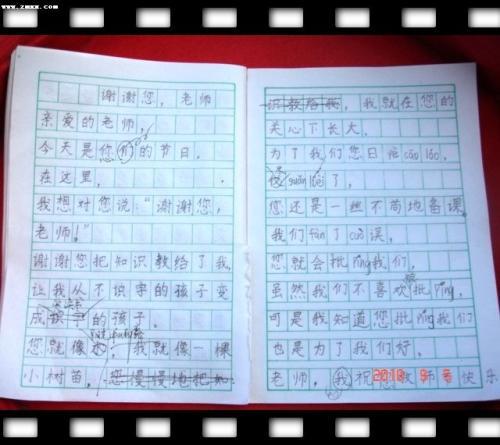 www.zmxx.com
谢谢您，老师
亲爱的老师，
今天是您们的节日，
在这里，
我想对您说：“谢谢您，
老师！”
谢谢您把知识教给了我，
让我从不识字的孩子变
成读书
识字的孩子。
您就像水，我就像一棵
小树苗，您慢慢地把知
识教给我，我就在您的
关心下长大。
为了我们您日夜cāo láo，
suān lèi了，
您还是一丝不苟地备课。
我们fàn了cuò误，
您就会批píng我们，
虽然我们不喜欢批píng，
可是我知道您批píng我们
也是为了我们好。
老师，我祝您教师节快乐